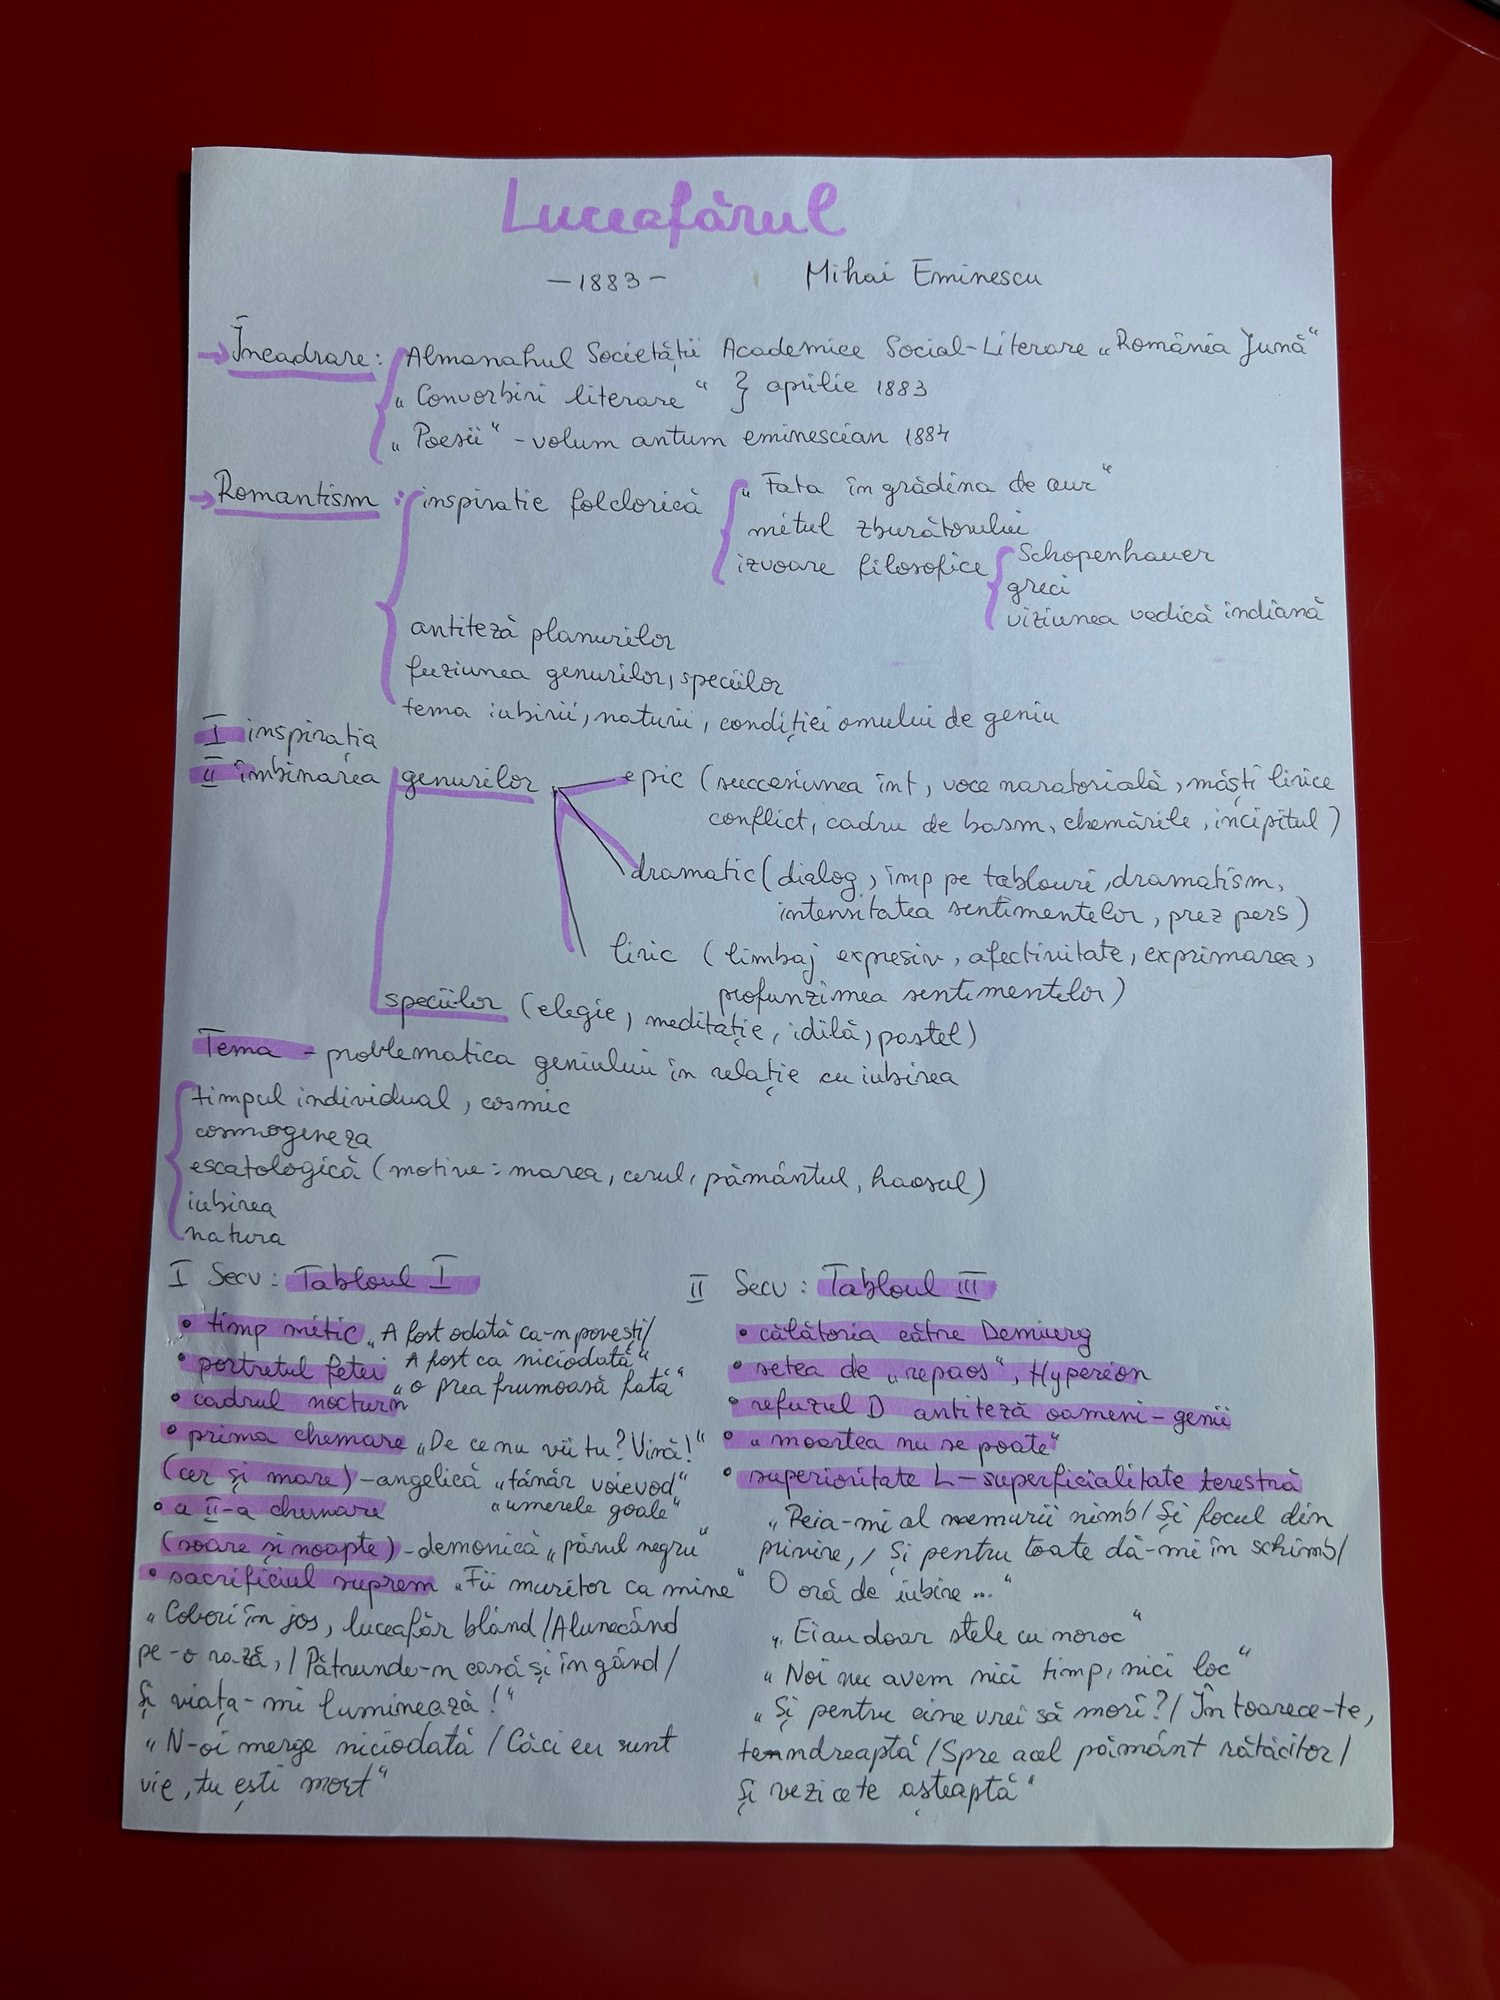 Luceafărul
—1883— Mihai Eminescu
→ Încadrare: Almanahul Societății Academice Social-Literare „România Jună“
„Convorbiri literare“ } aprilie 1883
„Poesii“ - volum antum eminescian 1884
→ Romantism: inspirație folclorică „Fata în grădina de aur“
mitul zburătorului
izvoare filosofice Schopenhauer
greci
viziunea vedică indiană
antiteză planurilor
fuziunea genurilor, speciilor
tema iubirii, naturii, condiției omului de geniu
I inspirația
II îmbinarea genurilor epic (succesiunea înt, voce naratorială, măști lirice
conflict, cadru de basm, chemările, incipitul)
dramatic (dialog, împ pe tablouri, dramatism,
intensitatea sentimentelor, prez pers)
liric (limbaj expresiv, afectivitate, exprimarea,
profunzimea sentimentelor)
speciilor (elegie, meditație, idilă, pastel)
Tema - problematica geniului în relație cu iubirea
timpul individual, cosmic
cosmogeneza
escatologică (motive: marea, cerul, pământul, haosul)
iubirea
natura
I Secv: Tabloul I
• timp mitic „A fost odată ca-n povești/
• portretul fetei A fost ca niciodată“
„o prea frumoasă fată“
• cadrul nocturn
• prima chemare „De ce nu vii tu? Vină!“
(cer și mare) - angelică „tânăr voievod“
• a II-a chemare „umerele goale“
(soare și noapte) - demonică „părul negru“
• sacrificiul suprem „Fii muritor ca mine“
„Cobori în jos, luceafăr blând/Alunecând
pe-o rază,/Pătrunde-n casă și în gând/
Și viața-mi luminează!“
„N-oi merge niciodată/Căci eu sunt
vie, tu ești mort“
II Secv: Tabloul III
• călătoria către Demiurg
• setea de „repaos“, Hyperion
• refuzul D antiteză oameni-genii
• „moartea nu se poate“
• superioritate L-superficialitate terestră
„Reia-mi al nemurii nimb/Și focul din
privire,/Și pentru toate dă-mi în schimb/
O oră de iubire...“
„Ei au doar stele cu noroc“
„Noi nu avem nici timp, nici loc“
„Și pentru cine vrei să mori?/Întoarece-te,
te-ndreaptă/Spre acel pământ rătăcitor/
Și vezi ce te așteaptă“